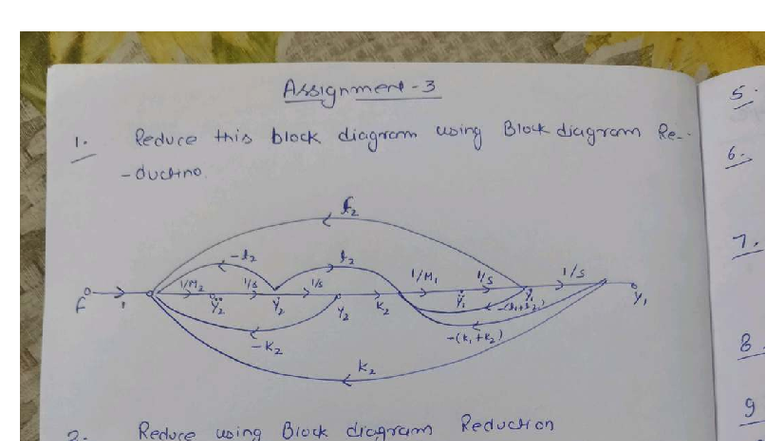 Assignment - 3
1. Reduce this block diagram using Block diagram Re-
-ductino.
f2
-f2 f2
1/M2 1/s 1/s 1/M1 1/s 1/s
F 1 Ÿ2 Ẏ2 Y2 K2 Ÿ1 Ẏ1 Y1
-(f1+f2)
-K2 -(K1+K2)
K2
2. Reduce using Block diagram Reduction
5.
6.
7.
8
9